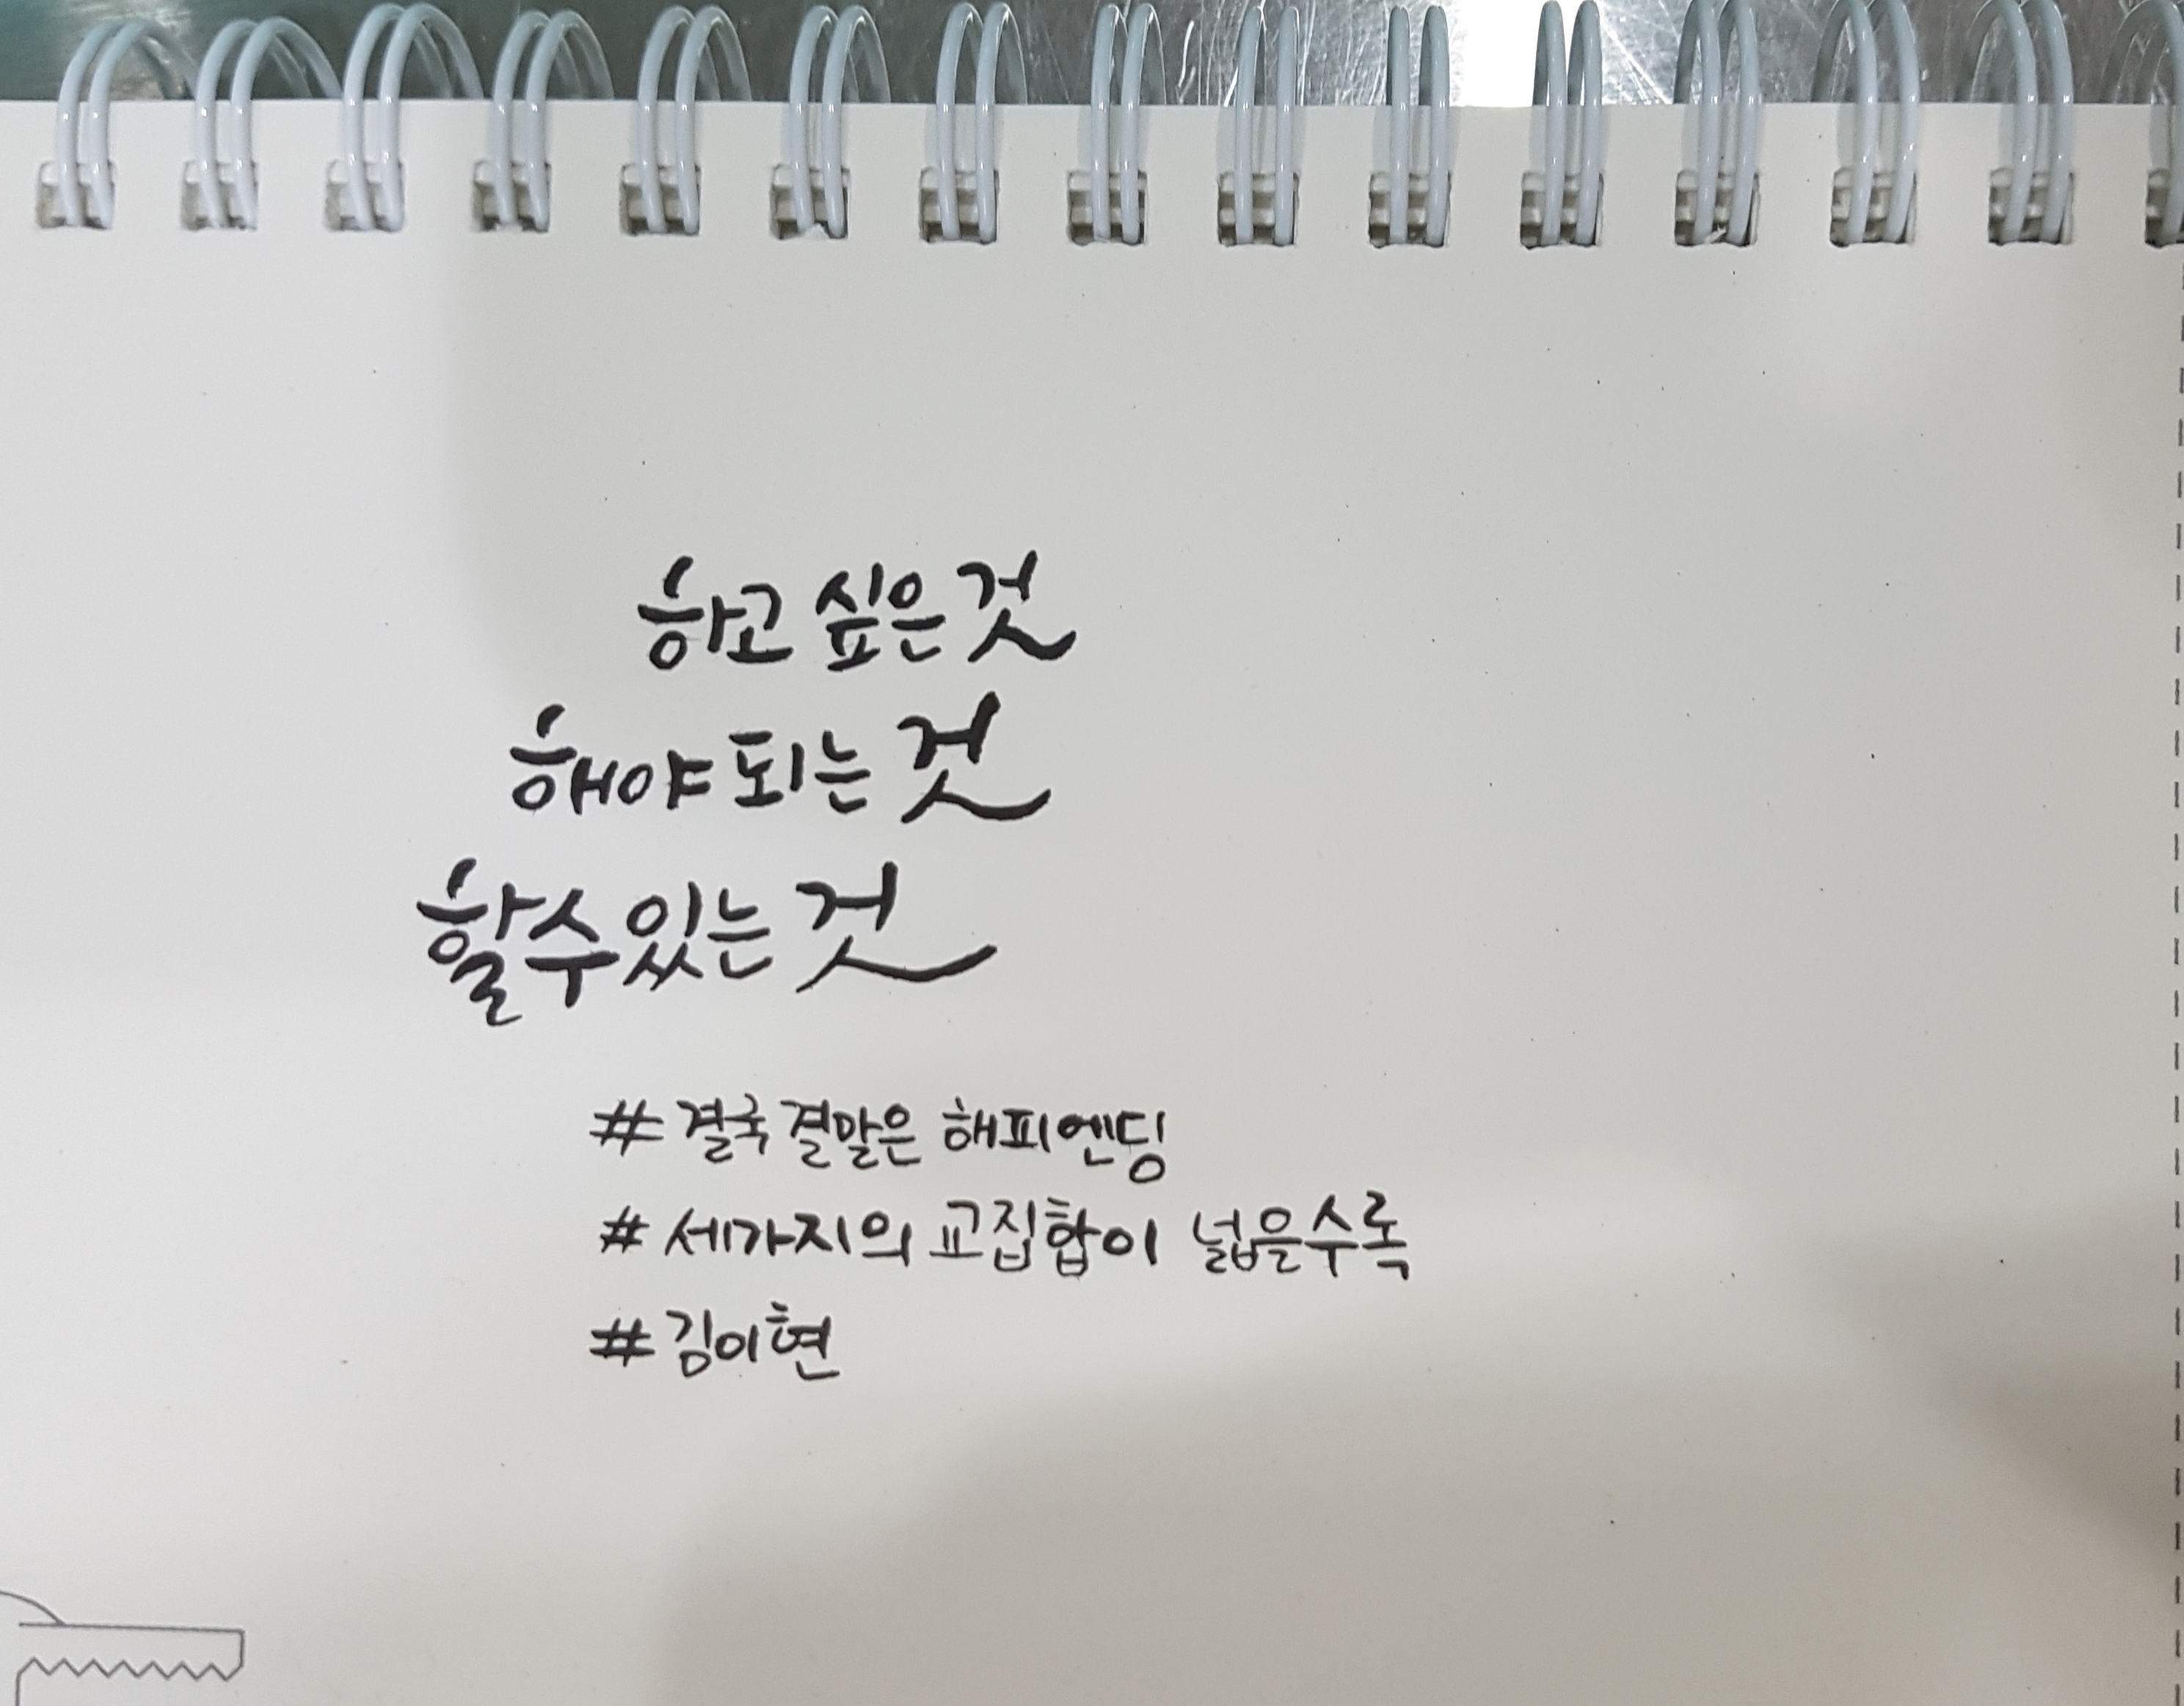 하고 싶은 것
해야 되는 것
할 수 있는 것
# 결국 결말은 해피엔딩
# 세가지의 교집합이 넓을수록
# 김이현